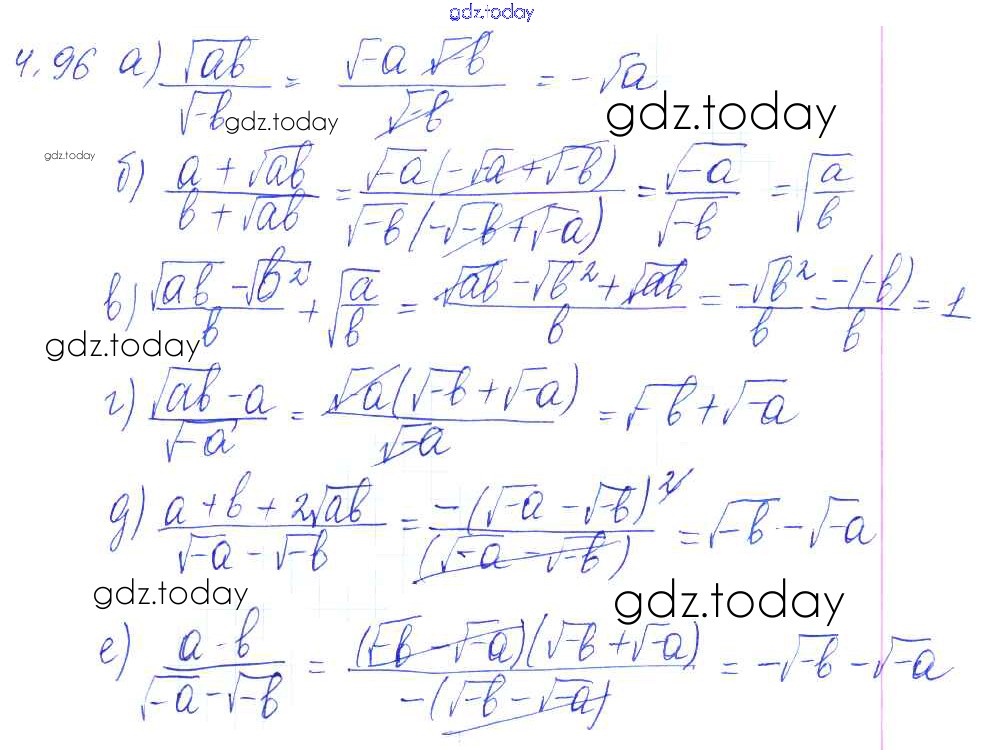 gdz.today
4.96 а) √ab / √-b = √-a √-b / √-b = -√a
gdz.today
gdz.today
gdz.today
б) a + √ab / b + √ab = √-a(-√a + √-b) / √-b(-√-b + √-a) = √-a / √-b = √a/b
в) √ab - √b² / b + √a/b = √ab - √b² + √ab / b = -√b² / b = -(-b) / b = 1
gdz.today
г) √ab - a / √-a = √-a(√-b + √-a) / √-a = √-b + √-a
д) a + b + 2√ab / √-a - √-b = -(√-a - √-b)² / (√-a - √-b) = √-b - √-a
gdz.today
gdz.today
е) a - b / √-a - √-b = (√-b - √-a)(√-b + √-a) / -(√-b - √-a) = -√-b - √-a